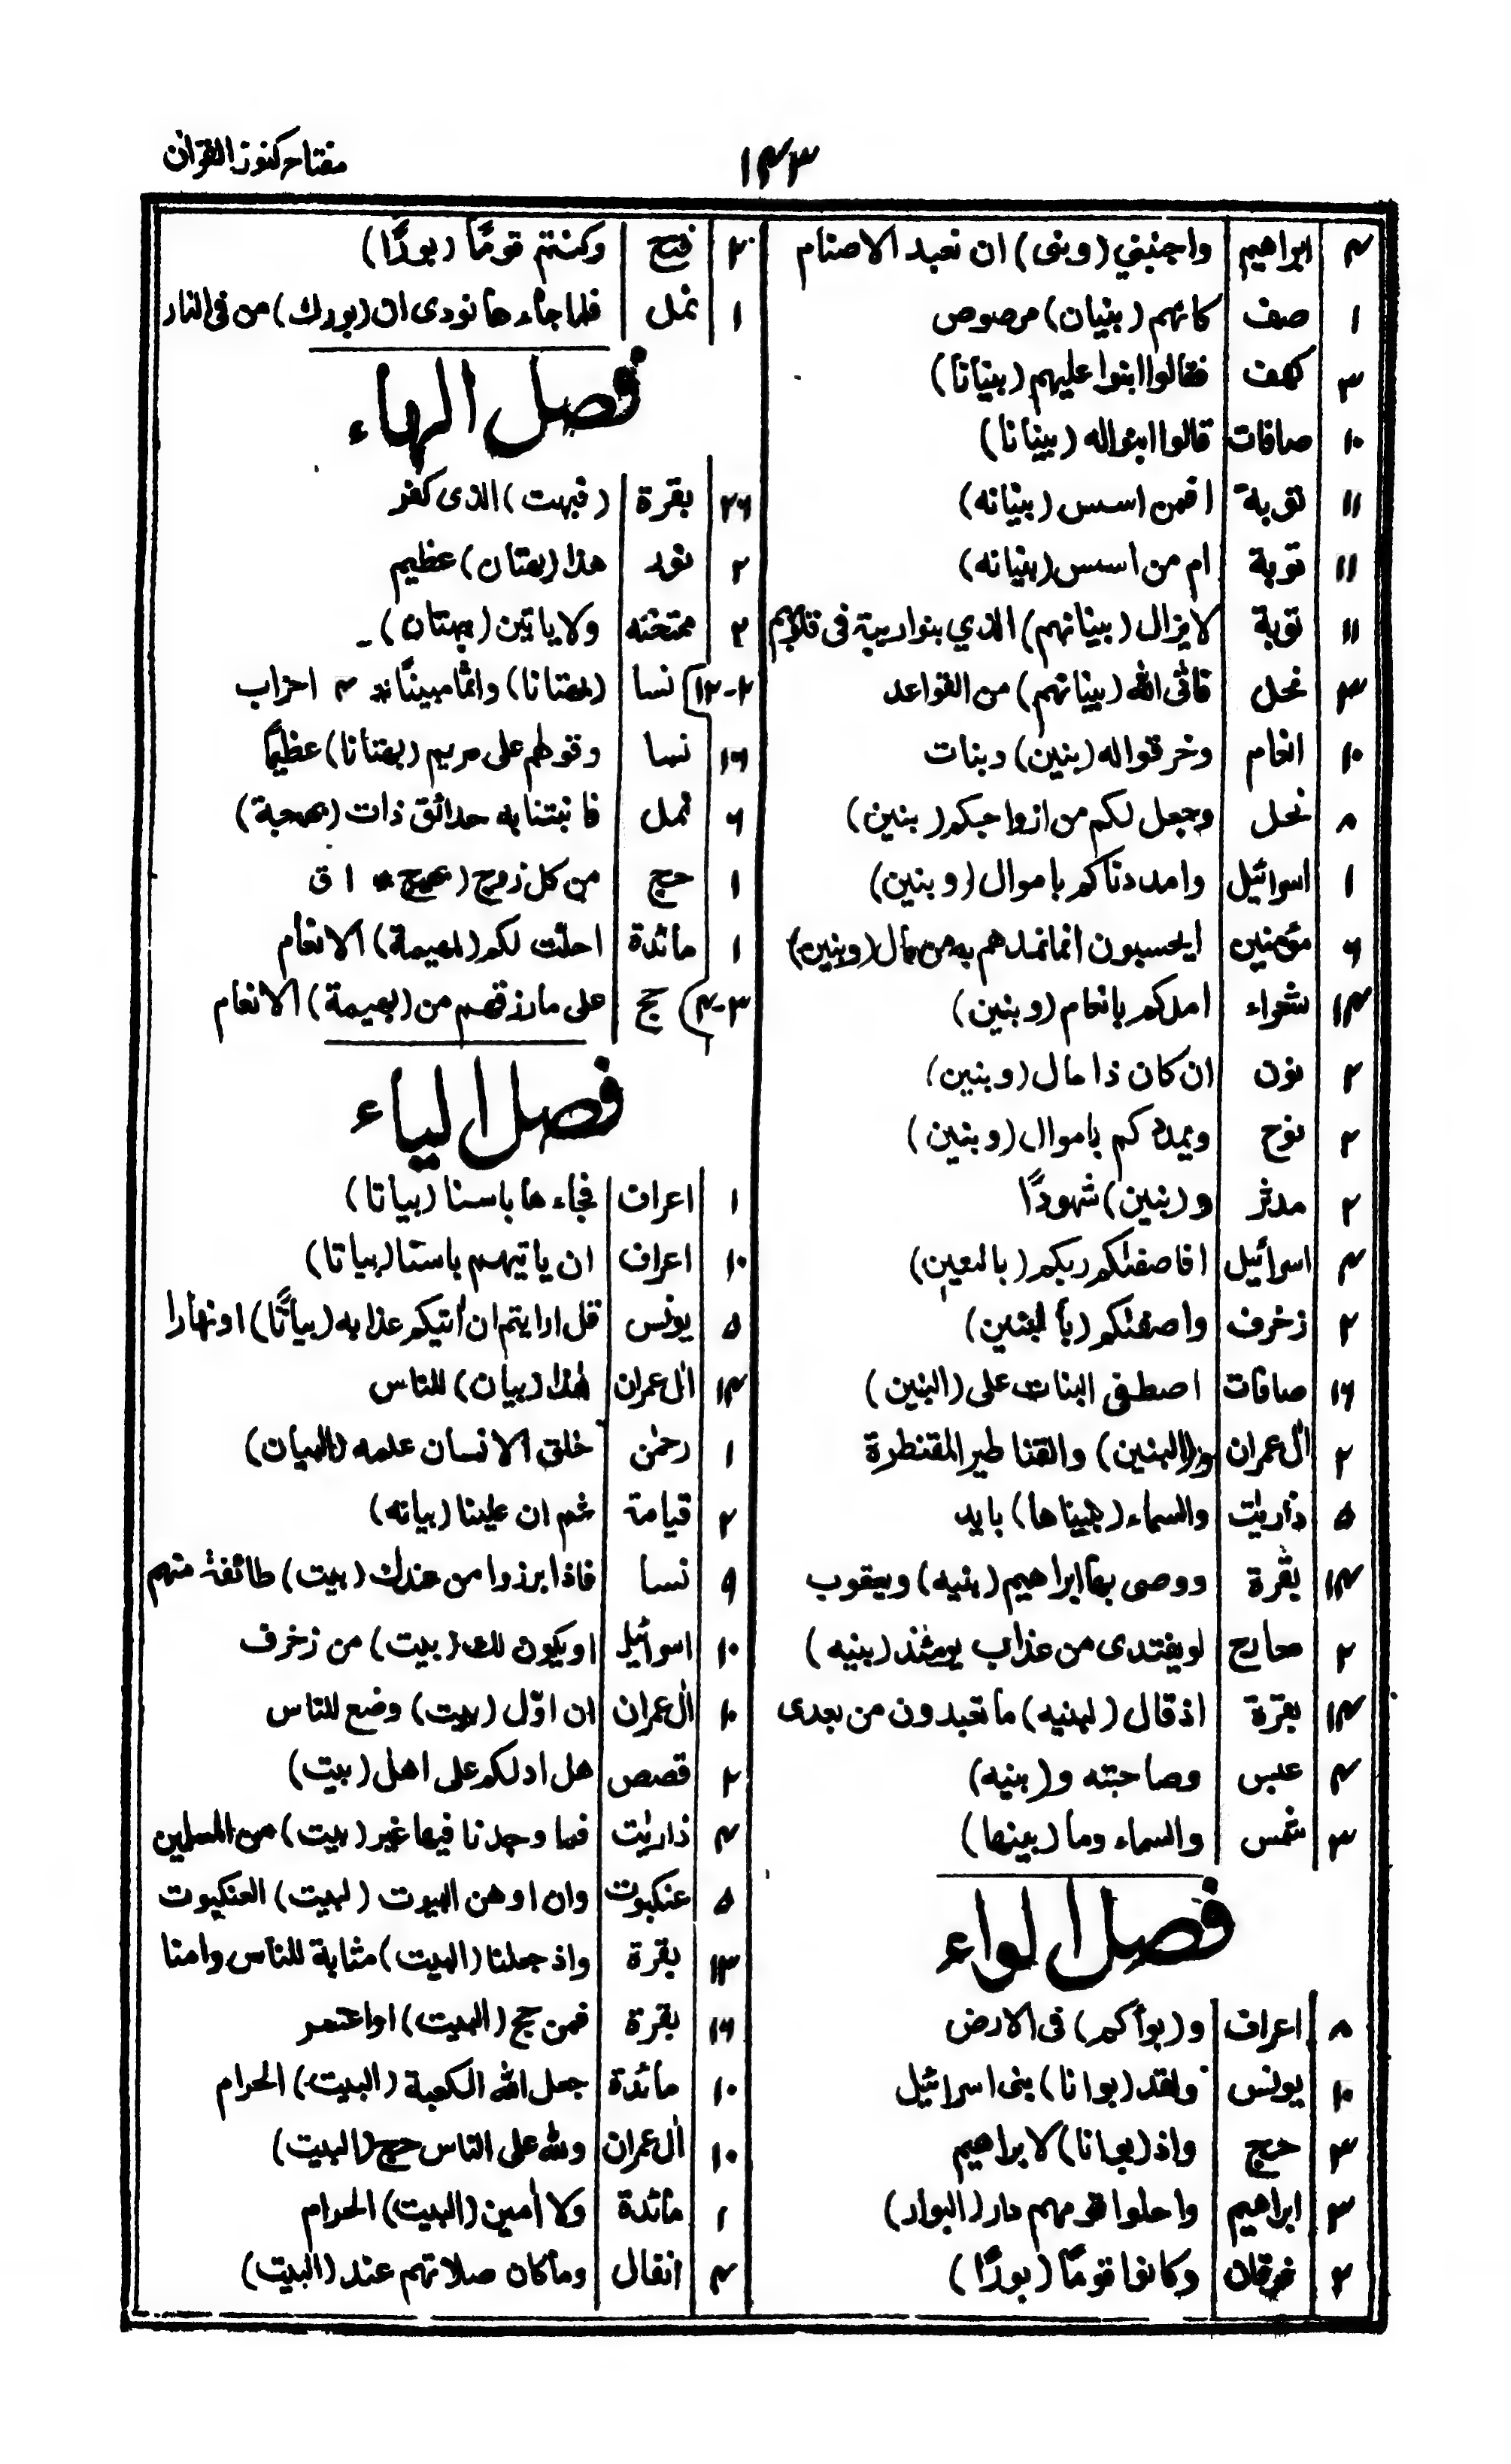 مفتاح كنوز القرآن
۱۴۳
۴ ابراهيم واجنبني (وبنى) ان نعبد الاصنام
۱ صف كانهم (بنيان) مرصوص
۳ كهف فقالوا ابنوا عليهم (بنيانا)
۱۰ صافات قالوا ابنواله (بينانا)
۱۱ توبة افمن اسس (بنيانه)
۱۱ توبة ام من اسس (بنيانه)
۱۱ توبة لا يزال (بنيانهم) الذي بنوا ريبة فى قلوبهم
۳ نحل فاتى الله (بنيانهم) من القواعد
۱۰ انعام وخرقواله (بنين) وبنات
۸ نحل وجعل لكم من ازواجكم (بنين)
۱ اسرائيل وامددناكم باموال (وبنين)
۶ مؤمنين ايحسبون انما نمدهم به من مال (وبنين)
۱۴ شعراء امدكم بانعام (وبنين)
۲ نون ان كان ذا مال (وبنين)
۲ نوح ويمددكم باموال (وبنين)
۲ مدثر و (بنين) شهودًا
۴ اسرائيل افاصفٰكم ربكم (بالبنين)
۲ زخرف واصفٰكم (بالبنين)
۱۶ صافات اصطفى البنات على (البنين)
۲ اٰل عمران و(البنين) والقناطير المقنطرة
۵ ذاريٰت والسماء (بنيناها) بايد
۱۴ بقرة ووصى بها ابراهيم (بنيه) ويعقوب
۲ معارج لو يفتدى من عذاب يومئذ (بنيه)
۱۴ بقرة اذ قال (لبنيه) ما تعبدون من بعدى
۴ عبس وصاحبته و (بنيه)
۳ شمس والسماء وما (بينها)
فصل الواء
۸ اعراف و (بوأكم) فى الارض
۱۰ يونس ولقد (بوانا) بنى اسرائيل
۳ حج واذ (بوانا) لابراهيم
۳ ابراهيم واحلوا قومهم دار (البوار)
۲ فرقان وكانوا قومًا (بورًا)
۲ فتح وكنتم قومًا (بورًا)
۱ نمل فلما جاءها نودى ان (بورك) من فى النار
فصل الهاء
۲۶ بقرة (فبهت) الذى كفر
۲ نور هذا (بهتان) عظيم
۲ ممتحنه ولا ياتين (ببهتان) ـ
۲-۱۲ نسا (بهتانا) واثما مبينًا * ۴ احزاب
۱۶ نسا وقولهم على مريم (بهتانا) عظيمًا
۶ نمل فانبتنا به حدائق ذات (بهجة)
۱ حج من كل زوج (بهيج * ۱ ق
۱ مائدة احلت لكم (بهيمة) الانعام
۳-۴ حج على ما رزقهم من (بهيمة) الانعام
فصل الياء
۱ اعراف فجاءها باسنا (بياتا)
۱۰ اعراف ان ياتيهم باسنا (بياتا)
۵ يونس قل ارايتم ان اتيكم عذابه (بياتًا) او نهارا
۱۴ اٰل عمران هٰذا (بيان) للناس
۱ رحمٰن خلق الانسان علمه (البيان)
۲ قيامة ثم ان علينا (بيانه)
۹ نسا فاذا برزوا من عندك (بيت) طائفة منهم
۱۰ اسرائيل او يكون لك (بيت) من زخرف
۱۰ اٰل عمران ان اوّل (بيت) وضع للناس
۲ قصص هل ادلكم على اهل (بيت)
۴ ذاريٰت فما وجدنا فيها غير (بيت) من المسلمين
۵ عنكبوت وان اوهن البيوت (لبيت) العنكبوت
۱۳ بقرة واذ جعلنا (البيت) مثابة للناس وامنا
۱۶ بقرة فمن حج (البيت) او اعتمر
۱۰ مائدة جعل الله الكعبة (البيت) الحرام
۱۰ اٰل عمران ولله على الناس حج (البيت)
۱ مائدة ولا اٰمين (البيت) الحرام
۴ انفال وما كان صلاتهم عند (البيت)